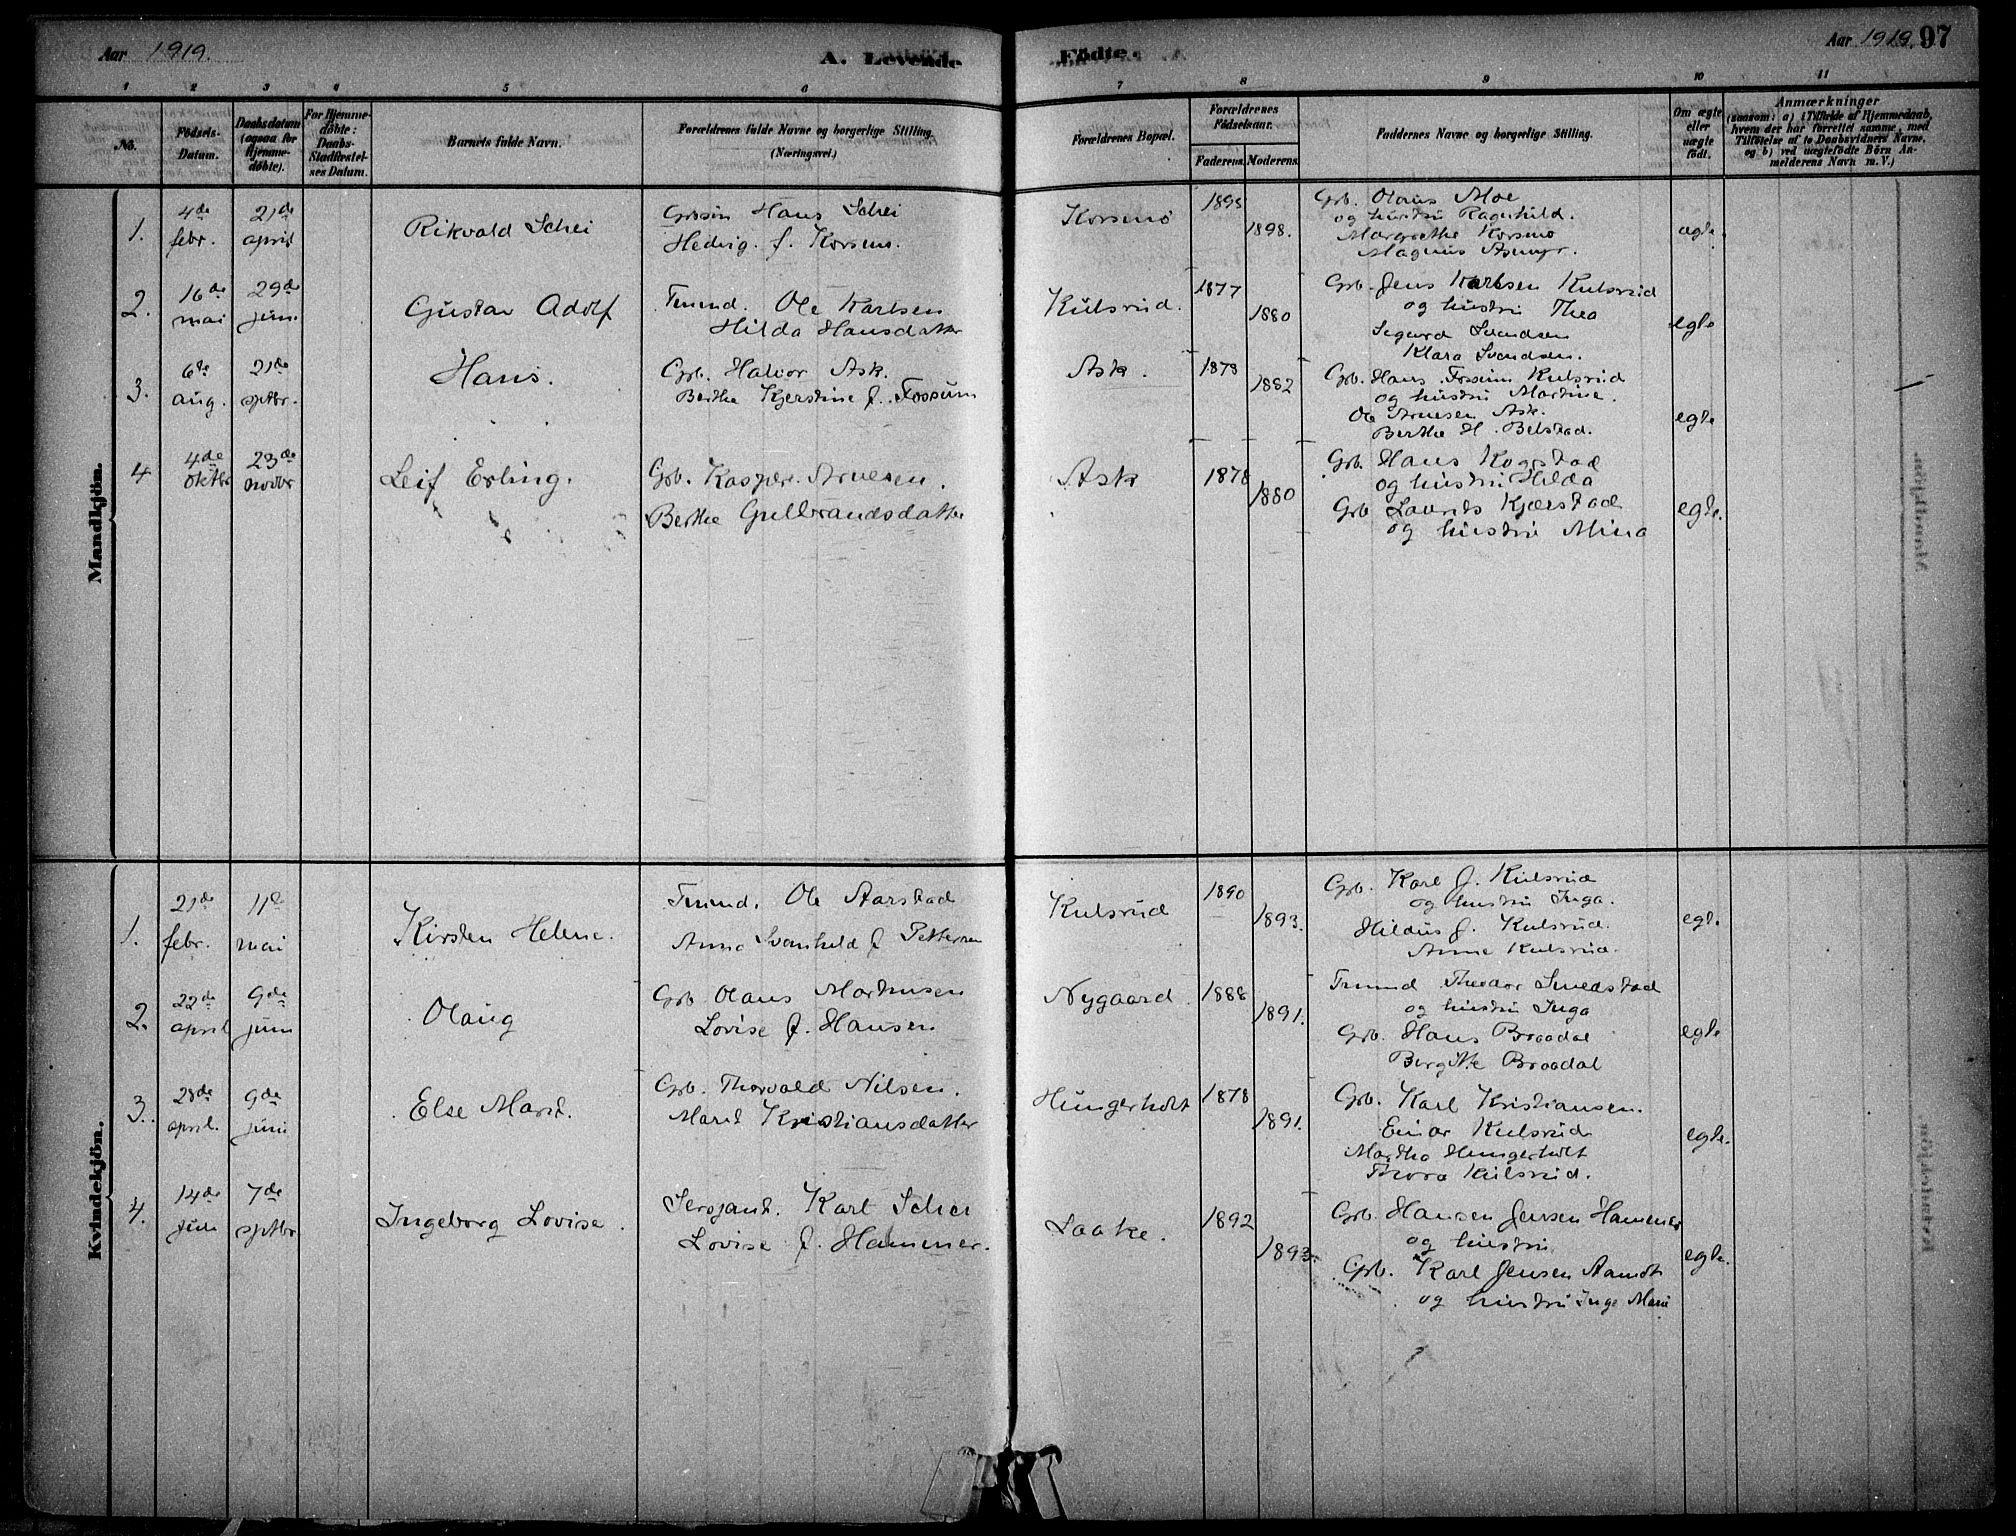 Aar 1919.
A. Levende
Födte.
Aar 1919. 97
1 2 3 4 5 6 7 8 9 10 11
No.
Födsels-Datum.
Daabsdatum (ogsaa for Hjemme-döbte).
For Hjemme-döbte: Daabs-Stadfæstel-ses Datum.
Barnets fulde Navn.
Forældrenes fulde Navne og borgerlige Stilling. (Næringsvei.)
Forældrenes Bopæl.
Forældrenes Födselsaar.
Faderens. Moderens.
Faddernes Navne og borgerlige Stilling.
Om ægte eller uægte födt.
Anmærkninger
(saasom: a) i Tilfælde af Hjemmedaab, hvem der har forrettet samme, med Tilföielse af to Daabsvidners Navne, og b) ved uægtefödte Börn Anmelderens Navn m. V.)
Mandkjön.
1. 4de febr. 21de april Rikvald Schei
Hans Schei
Hedvig f. Korsmo.
Korsmo 1895 1898.
Grb. Olaus Moe
og hustru Ragnhild.
Margrethe Korsmo
Magnus Asmyr.
ægte.
2. 16de mai 29de juni Gustav Adolf
Tmmd. Ole Karlsen
Hilda Hansdatter
Kulsrud. 1877 1880
Grb. Jens Karlsen Kulsrud
og hustru Thea
Sigurd Svendsen
Klara Svendsen.
egte
3. 6te aug. 21de septbr. Hans.
Grb. Halvor Ask.
Berthe Kjerstine f. Fossum
Ask. 1878 1882
Grb. Hans Fossum Kulsrud
og hustru Martine.
Ole Arnesen Ask.
Berthe H. Belstad.
egte
4 4de oktbr 23de novbr Leif Erling.
Grb. Kasper Arnesen.
Berthe Gulbrandsdatter
Ask 1878 1880
Grb. Hans Kogstad
og hustru Hilda
Grb Laurits Kjærstad
og hustru Mina
egte.
Kvindekjön.
1. 21de febr. 11te mai Kirsten Helene.
Tmmd. Ole Aarstad
Anna Svanhild f Pettersen
Kulsrud 1890 1893.
Grb. Karl J. Kulsrud
og hustru Inga.
Hildus J. Kulsrud.
Anne Kulsrud.
egt.
2. 22de april 9de juni Olaug
Grb Olaus Marthinsen
Lovise f. Hansen
Nygaard. 1888 1891.
Tmmd Theodor Smedstad
og hustru Inga
Grb. Hans Braadal
Bergitte Braadal
egte
3. 28de april. 9de juni Else Marit.
Grb. Thorvald Nilsen.
Marit Kristiansdatter
Hungerholt 1878 1891.
Grb. Karl Kristiansen.
Einar Kulsrud
Martha Hungerholt
Thora Kulsrud.
egte.
4. 14de juni 7de septbr Ingeborg Lovise.
Sersjant. Karl Schei
Lovise f. Hammer.
Laake. 1892 1893.
Grb. Hansen Jensen Hammer
og hustru
Grb. Karl Jensen Aamodt
og hustru Inga Marie
egte.